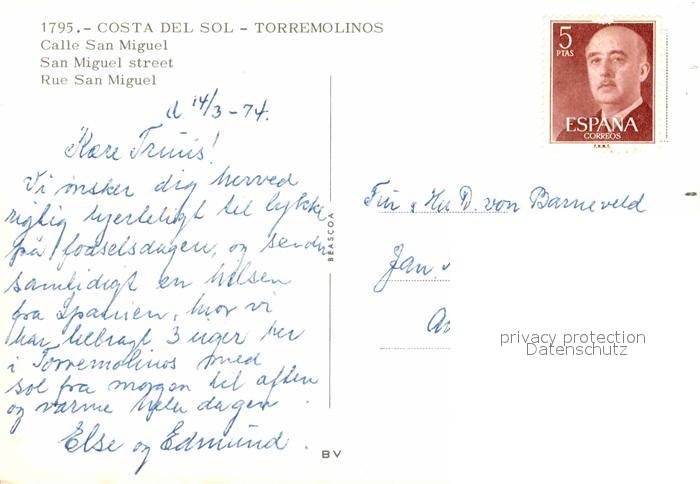 1795.- COSTA DEL SOL - TORREMOLINOS
Calle San Miguel
San Miguel street
Rue San Miguel
d 14/3-74.
Kære Truus!
Vi ønsker dig herved
rigtig hjerteligt til lykke
på fødselsdagen, og sender
samtidigt en hilsen
fra Spanien, hvor vi
har tilbragt 3 uger her
i Torremolinos med
sol fra morgen til aften
og varme hele dagen.
Else og Edmund.
BEASCOA
BV
5
PTAS
ESPAÑA
CORREOS
F.N.M.T.
D. von Barneveld
Jan.
privacy protection
Datenschutz